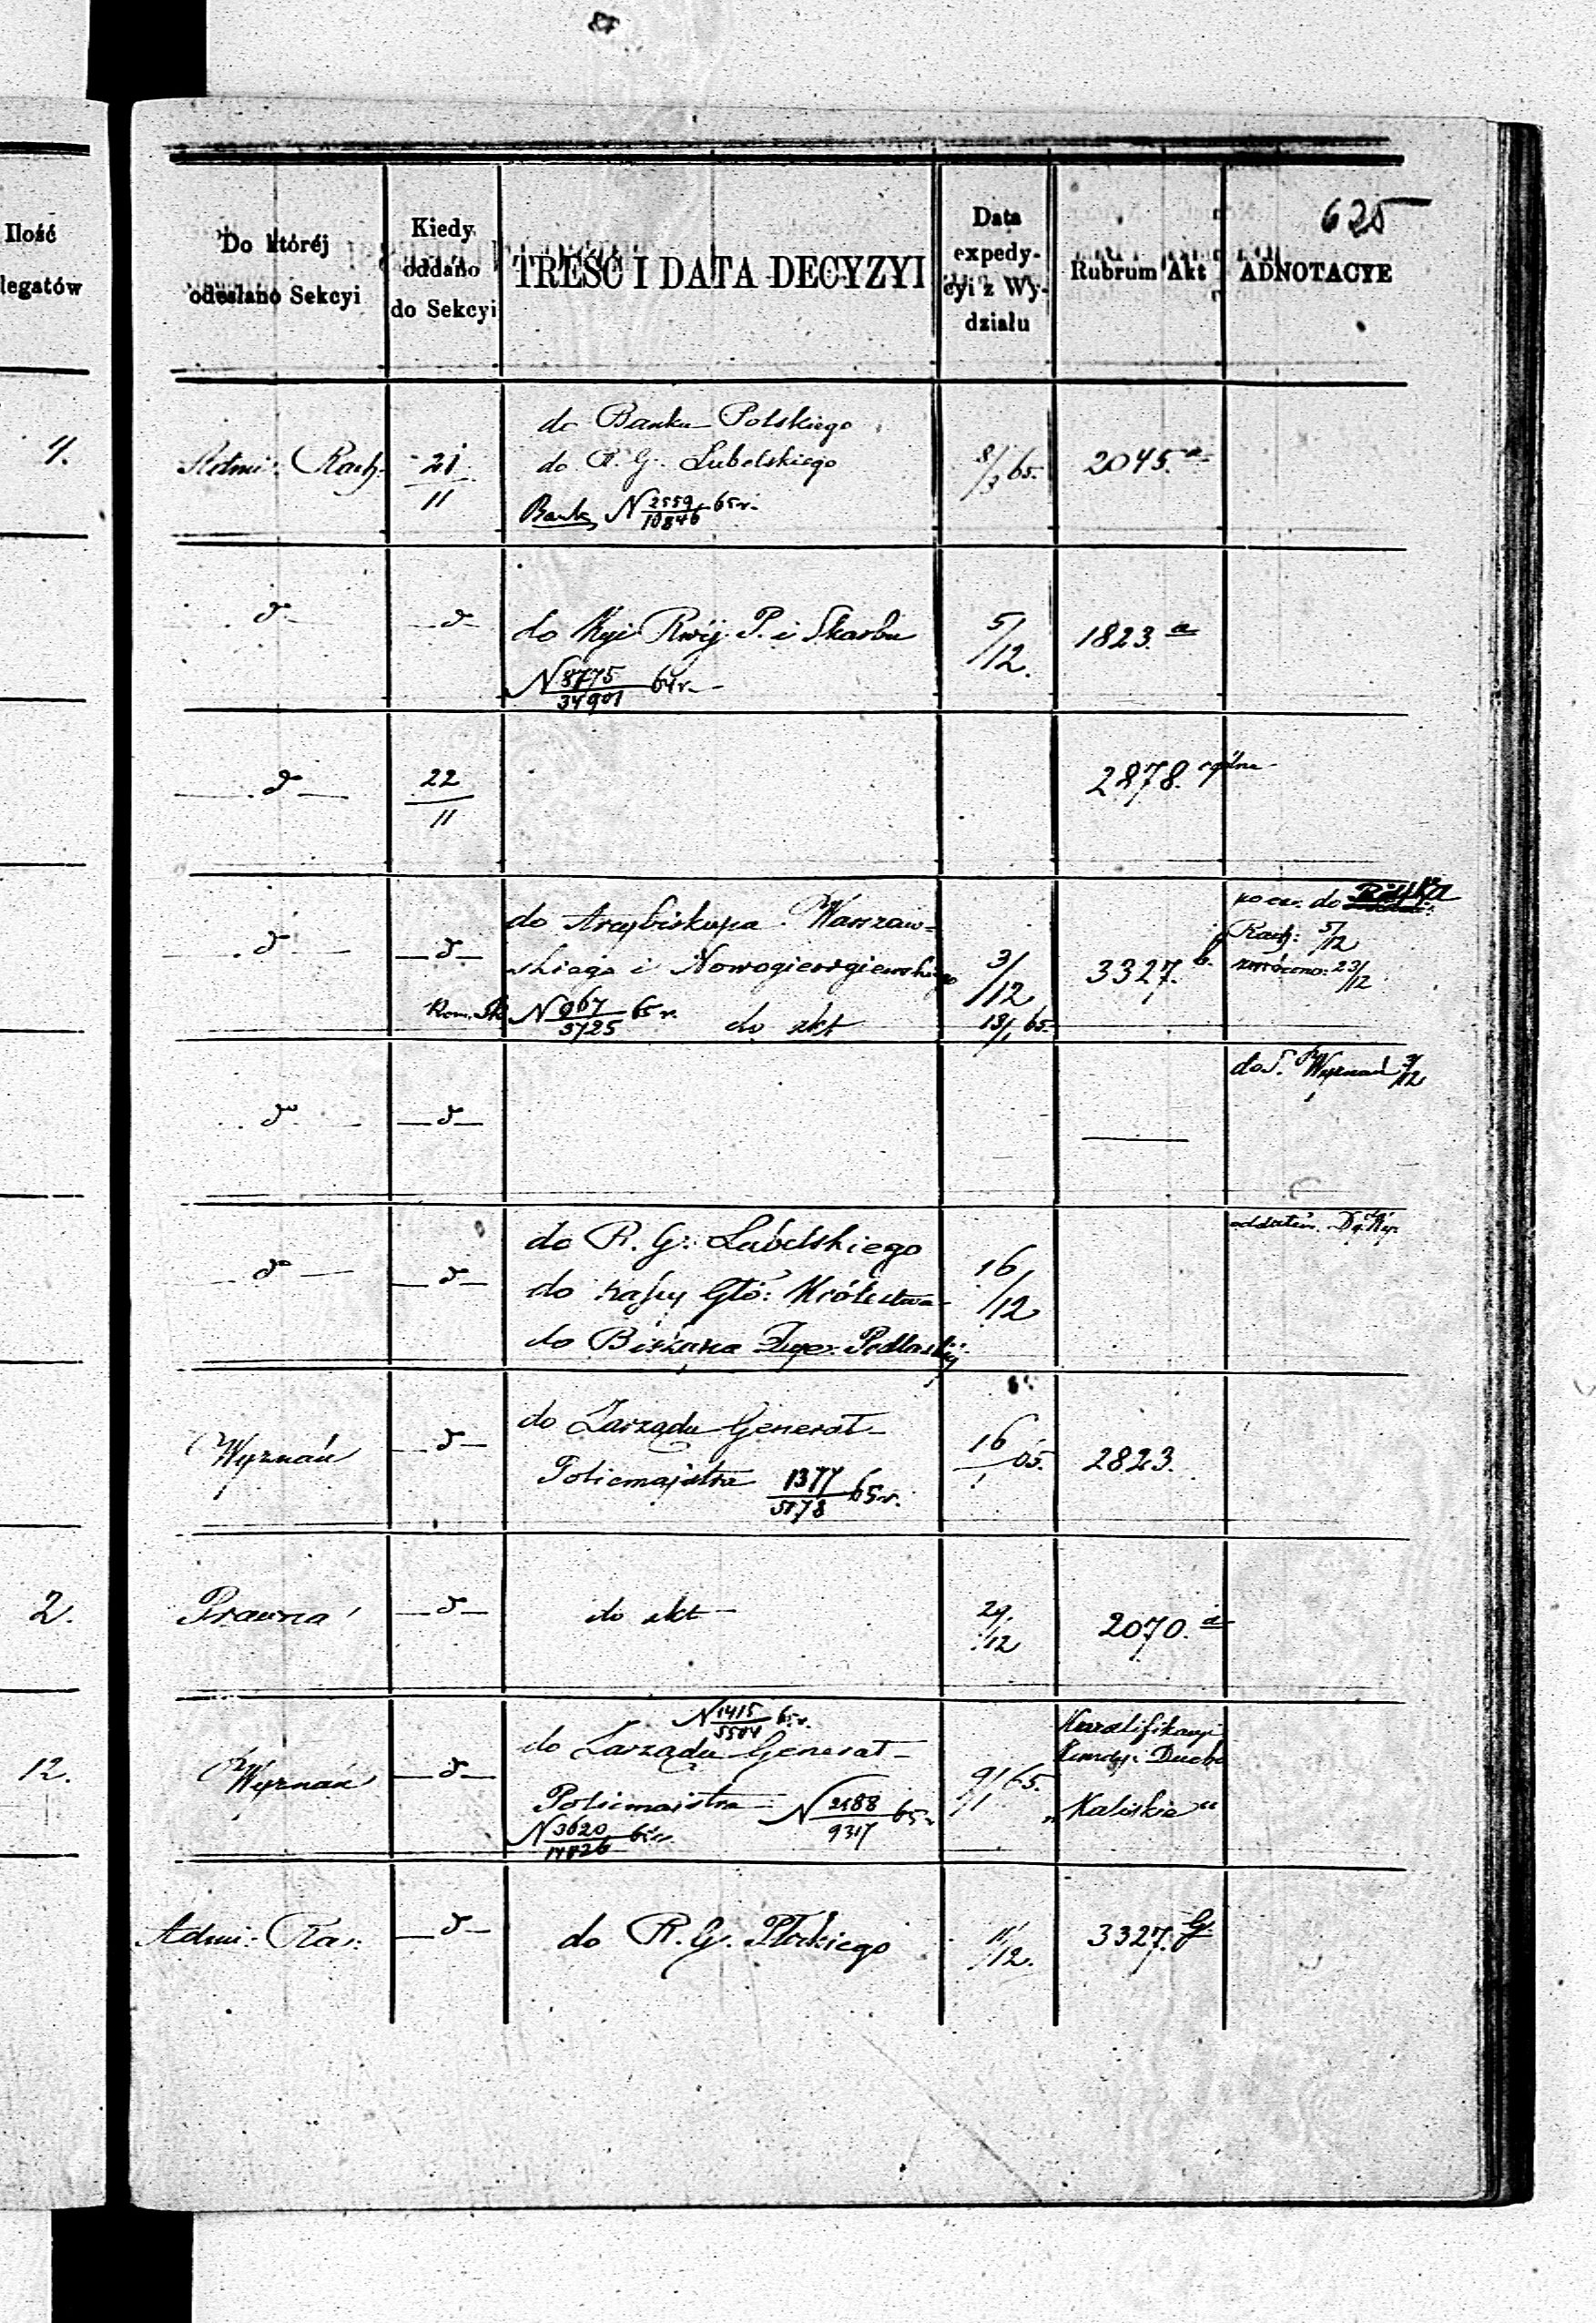 625
Ilość
legatów
Do któréj
odesłano Sekcyi
Kiedy
oddano
do Sekcyi
TREŚĆ I DATA DECYZYI
Data
expedy-
cyi z Wy-
działu
Rubrum Akt
ADNOTACYE
4.
Admi: Rach.
21
11
do Banku Polskiego
do R. G. Lubelskiego
Bank N 2559/10846 65 r.
8/3 65.
2045. a
d
d
do Kyi Rwéj. P. i Skarbu
N 8775/34901 64 r.
5/12.
1823. a
d
22
11
2878. ogólne
d
d
do Arcybiskupa Warszaw-
skiego i Nowogieorgiewskiego
N 967/3725 65 r. do akt
3/12
13/1 65.
3327. b.
do
Rach: 5/12
zwrócono: 23/12
d
d
do S. Wyznań 3/12
d
d
do R. G. Lubelskiego
do Kassy Głó: Królestwa
do Biskupa Dyec. Podlaskiéj
16/12
Wyznań
d
do Zarządu Generał-
Policmajstra 1377/5178 65 r.
16/1 65.
2823.
2.
Prawna
d
do akt
29/12
2070. a
12.
Wyznań
d
N 1415/5504 65 r.
do Zarządu Generał-
Policmajstra N 2188/9317 65 r.
N 3620/14826 65 r.
9/1 65.
Kwalifikacyi
Ducho
"Kaliskie"
Admi: Ra:
d
do R. G. Płockiego
11/12.
3327. G.